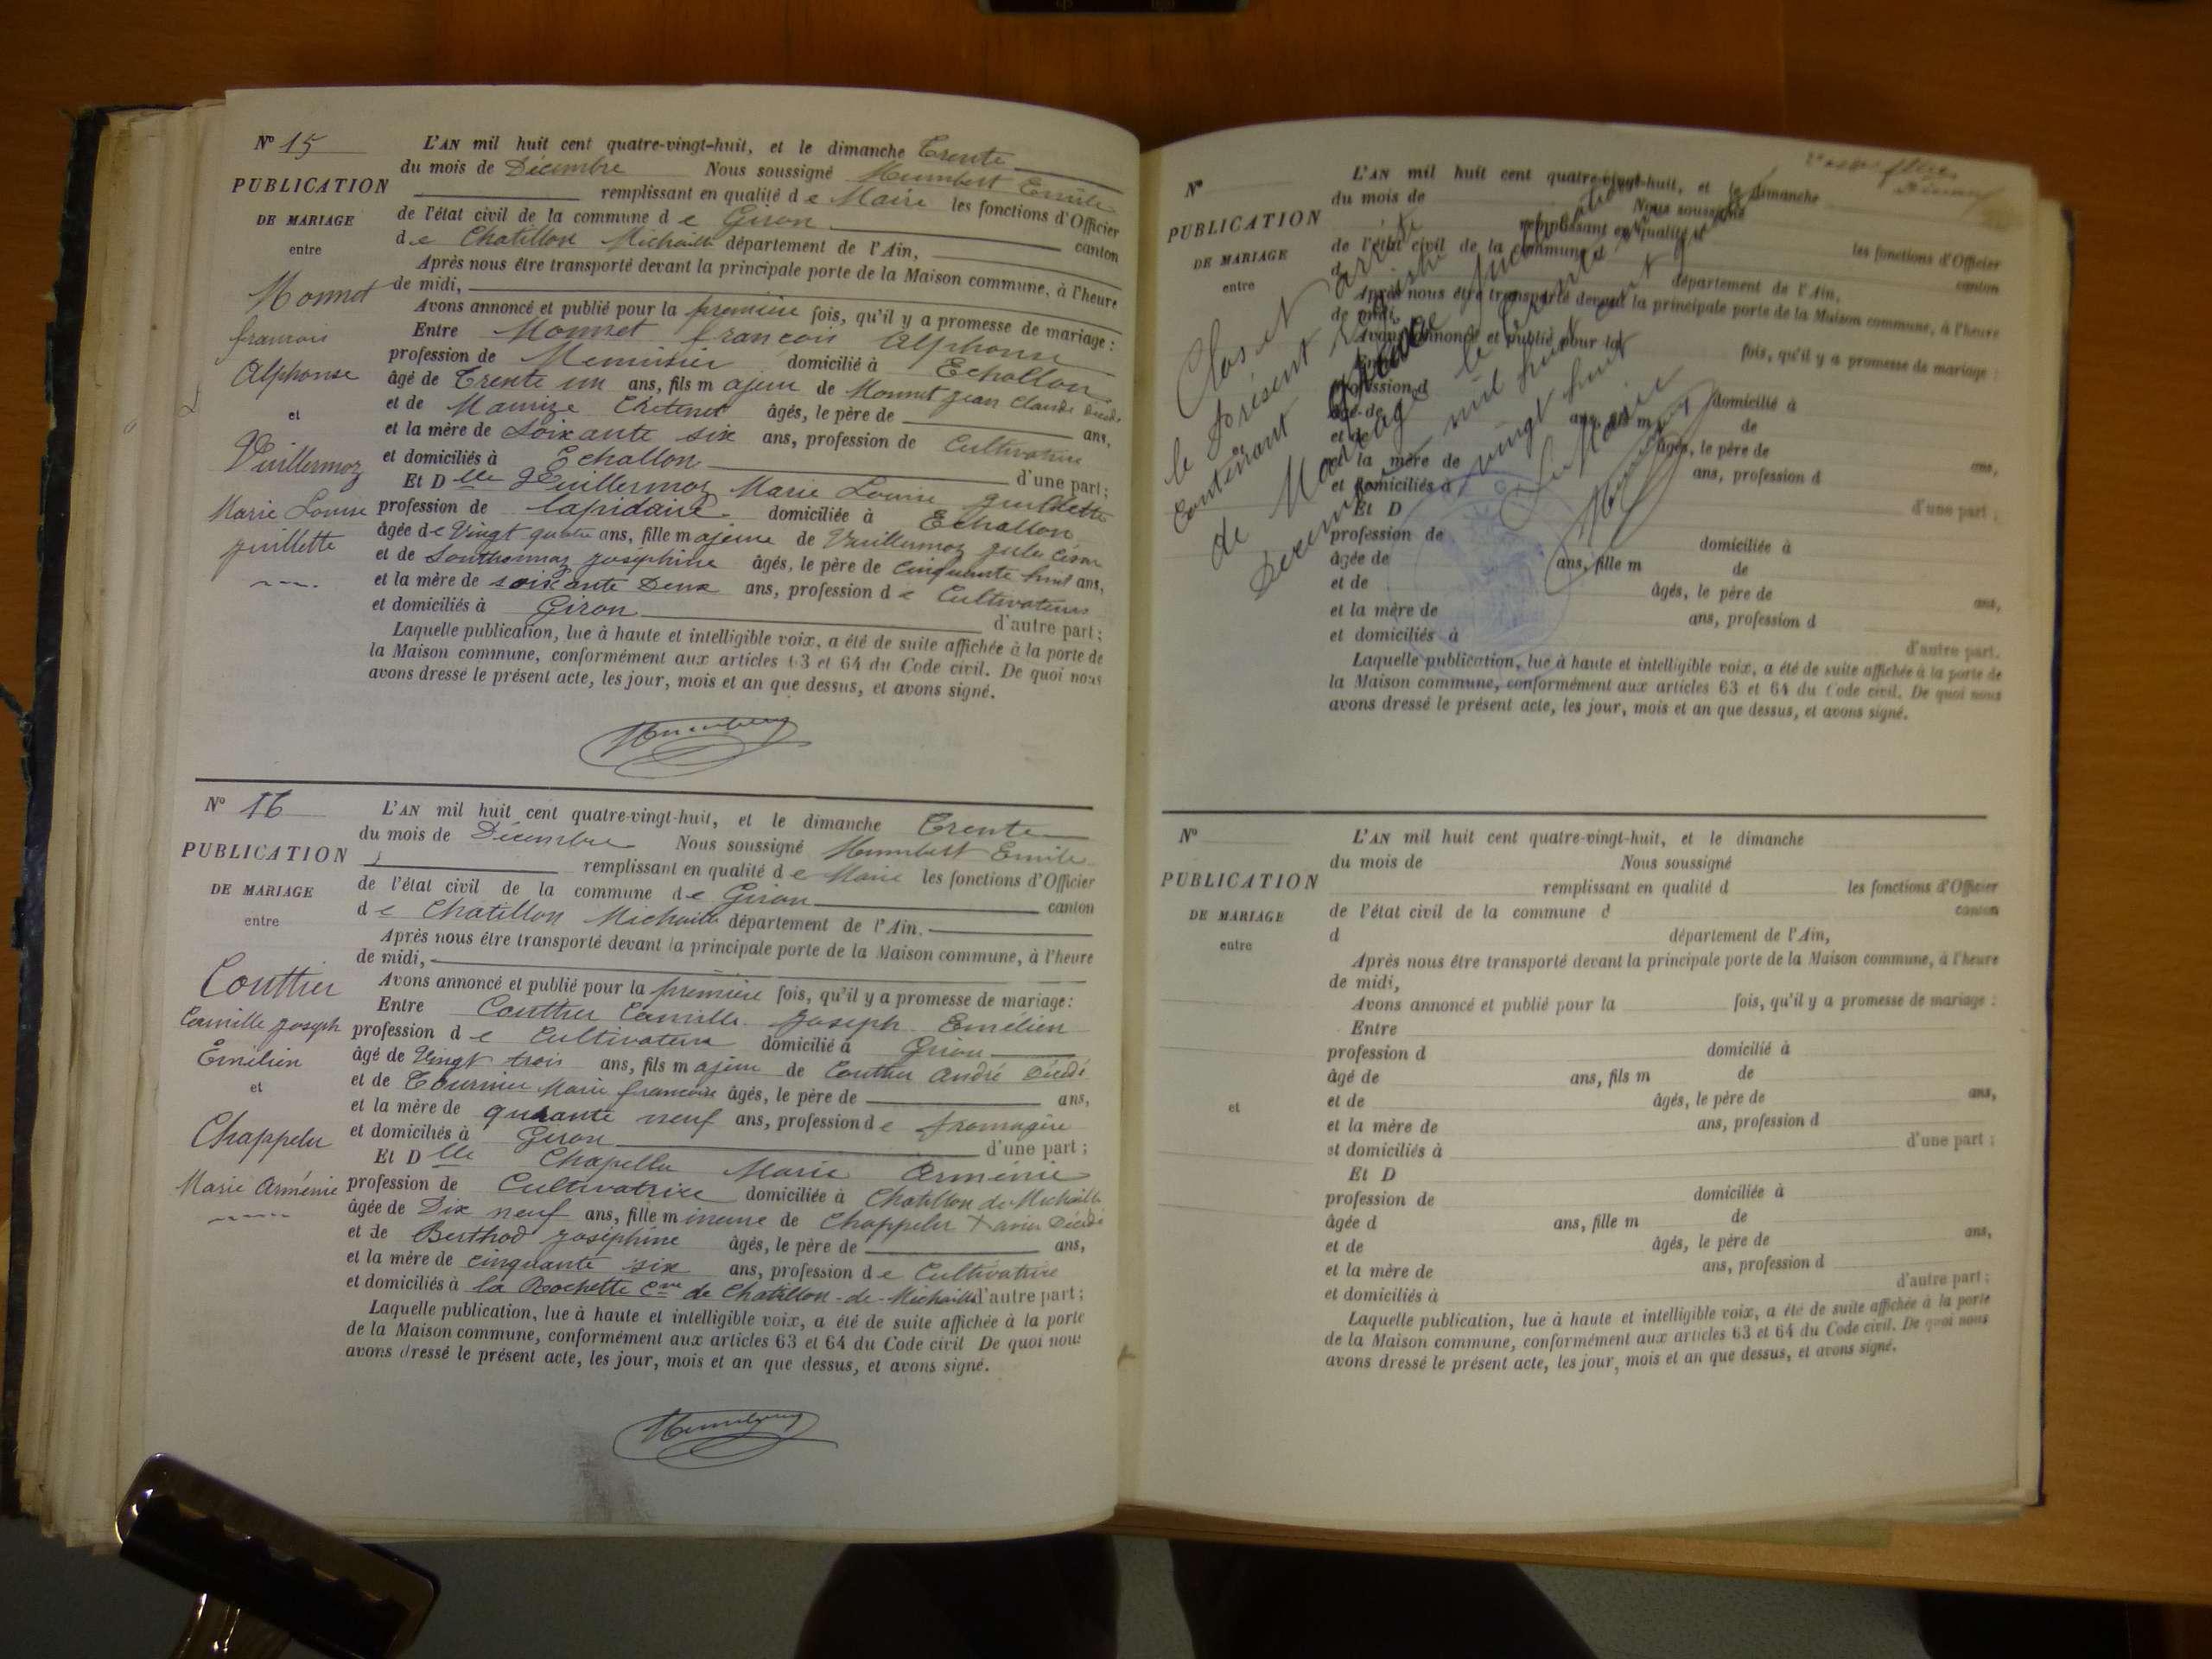 Nº 15
PUBLICATION
DE MARIAGE
entre
Monnet
françois
Alphonse
et
Vuillermoz
Marie Louise
juillette
L'AN mil huit cent quatre-vingt-huit, et le dimanche Trente
du mois de Décembre Nous soussigné Humbert Emile
remplissant en qualité de Maire les fonctions d'Officier
de l'état civil de la commune de Giron canton
de Chatillon Michaille département de l'Ain,
Après nous être transporté devant la principale porte de la Maison commune, à l'heure
de midi,
Avons annoncé et publié pour la première fois, qu'il y a promesse de mariage :
Entre Monnet françois Alphonse
profession de Menuisier domicilié à Echallon
âgé de Trente un ans, fils majeur de Monnet jean Claude Décédé
et de Maurize âgés, le père de ans,
et la mère de Soixante six ans, profession de Cultivatrice
et domiciliés à Echallon d'une part ;
Et Dlle Vuillermoz Marie Louise juillette
profession de lapidaire domiciliée à Echallon
âgée de Vingt quatre ans, fille majeure de Vuillermoz jules César
et de Southonnaz joséphine âgés, le père de cinquante huit ans,
et la mère de soixante Deux ans, profession de Cultivateurs
et domiciliés à Giron d'autre part ;
Laquelle publication, lue à haute et intelligible voix, a été de suite affichée à la porte de
la Maison commune, conformément aux articles 63 et 64 du Code civil. De quoi nous
avons dressé le présent acte, les jour, mois et an que dessus, et avons signé.
Humbert
Nº 16
PUBLICATION
DE MARIAGE
entre
Couttier
Camille joseph
Émilien
et
Chappelu
Marie Arménie
L'AN mil huit cent quatre-vingt-huit, et le dimanche Trente
du mois de Décembre Nous soussigné Humbert Emile
remplissant en qualité de Maire les fonctions d'Officier
de l'état civil de la commune de Giron canton
de Chatillon Michaille département de l'Ain.
Après nous être transporté devant la principale porte de la Maison commune, à l'heure
de midi,
Avons annoncé et publié pour la première fois, qu'il y a promesse de mariage :
Entre Couttier Camille joseph Emélien
profession de Cultivateur domicilié à Giron
âgé de Vingt trois ans, fils majeur de Couttier André Décédé
et de Tournier Marie françoise âgés, le père de ans,
et la mère de quarante neuf ans, profession de fromagère
et domiciliés à Giron d'une part ;
Et Dlle Chapellu Marie Arménie
profession de Cultivatrice domiciliée à Chatillon de Michaille
âgée de Dix neuf ans, fille mineure de Chappelu Xavier Décédé
et de Berthod joséphine âgés, le père de ans,
et la mère de cinquante six ans, profession de Cultivatrice
et domiciliés à la Rochette Cne de Chatillon-de-Michaille d'autre part ;
Laquelle publication, lue à haute et intelligible voix, a été de suite affichée à la porte
de la Maison commune, conformément aux articles 63 et 64 du Code civil De quoi nous
avons dressé le présent acte, les jour, mois et an que dessus, et avons signé.
Humbert
Nº
PUBLICATION
DE MARIAGE
entre
L'AN mil huit cent quatre-vingt-huit, et le dimanche
du mois de Nous soussigné
remplissant en qualité d les fonctions d'Officier
de l'état civil de la commune d canton
d département de l'Ain,
Après nous être transporté devant la principale porte de la Maison commune, à l'heure
de midi,
Avons annoncé et publié pour la fois, qu'il y a promesse de mariage :
Entre
profession d domicilié à
âgé de ans, fils m de
et de âgés, le père de ans,
et la mère de ans, profession d
et domiciliés à d'une part ;
Et D
profession de domiciliée à
âgée de ans, fille m de
et de âgés, le père de ans,
et la mère de ans, profession d
et domiciliés à d'autre part.
Laquelle publication, lue à haute et intelligible voix, a été de suite affichée à la porte de
la Maison commune, conformément aux articles 63 et 64 du Code civil. De quoi nous
avons dressé le présent acte, les jour, mois et an que dessus, et avons signé.
Clos et arrêté
le présent registre
contenant publications
de Mariage le trente
Décembre mil huit cent
vingt huit
Le Maire
Humbert
Nº
PUBLICATION
DE MARIAGE
entre
et
L'AN mil huit cent quatre-vingt-huit, et le dimanche
du mois de Nous soussigné
remplissant en qualité d les fonctions d'Officier
de l'état civil de la commune d canton
d département de l'Ain,
Après nous être transporté devant la principale porte de la Maison commune, à l'heure
de midi,
Avons annoncé et publié pour la fois, qu'il y a promesse de mariage :
Entre
profession d domicilié à
âgé de ans, fils m de
et de âgés, le père de ans,
et la mère de ans, profession d
et domiciliés à d'une part ;
Et D
profession de domiciliée à
âgée d ans, fille m de
et de âgés, le père de ans,
et la mère de ans, profession d
et domiciliés à d'autre part ;
Laquelle publication, lue à haute et intelligible voix, a été de suite affichée à la porte
de la Maison commune, conformément aux articles 63 et 64 du Code civil. De quoi nous
avons dressé le présent acte, les jour, mois et an que dessus, et avons signé.